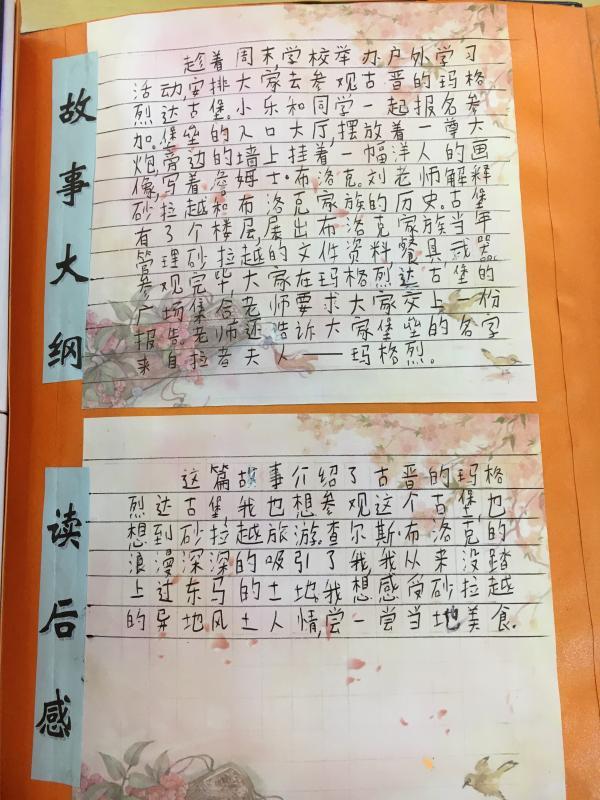 故事大纲
趁着周末,学校举办户外学习
活动,安排大家去参观古晋的玛格
烈达古堡。小乐和同学一起报名参
加。堡垒的入口大厅,摆放着一尊大
炮,旁边的墙上挂着一幅洋人的画
像,写着詹姆士·布洛克。刘老师解释
砂拉越和布洛克家族的历史。古堡
有了个楼层,展出布洛克家族当年
管理砂拉越的文件资料餐具武器
参观完毕大家在玛格烈达古堡的
广场集合老师要求大家交上一份
报告。老师还告诉大家堡垒的名字
来自拉者夫人——玛格烈。
读后感
这篇故事介绍了古晋的玛格
烈达古堡,我也想参观这个古堡,也
想到砂拉越旅游。查尔斯·布洛克的
浪漫深深的吸引了我,我从来没踏
上过东马的土地,我想感受砂拉越
的异地风土人情,尝一尝当地美食.